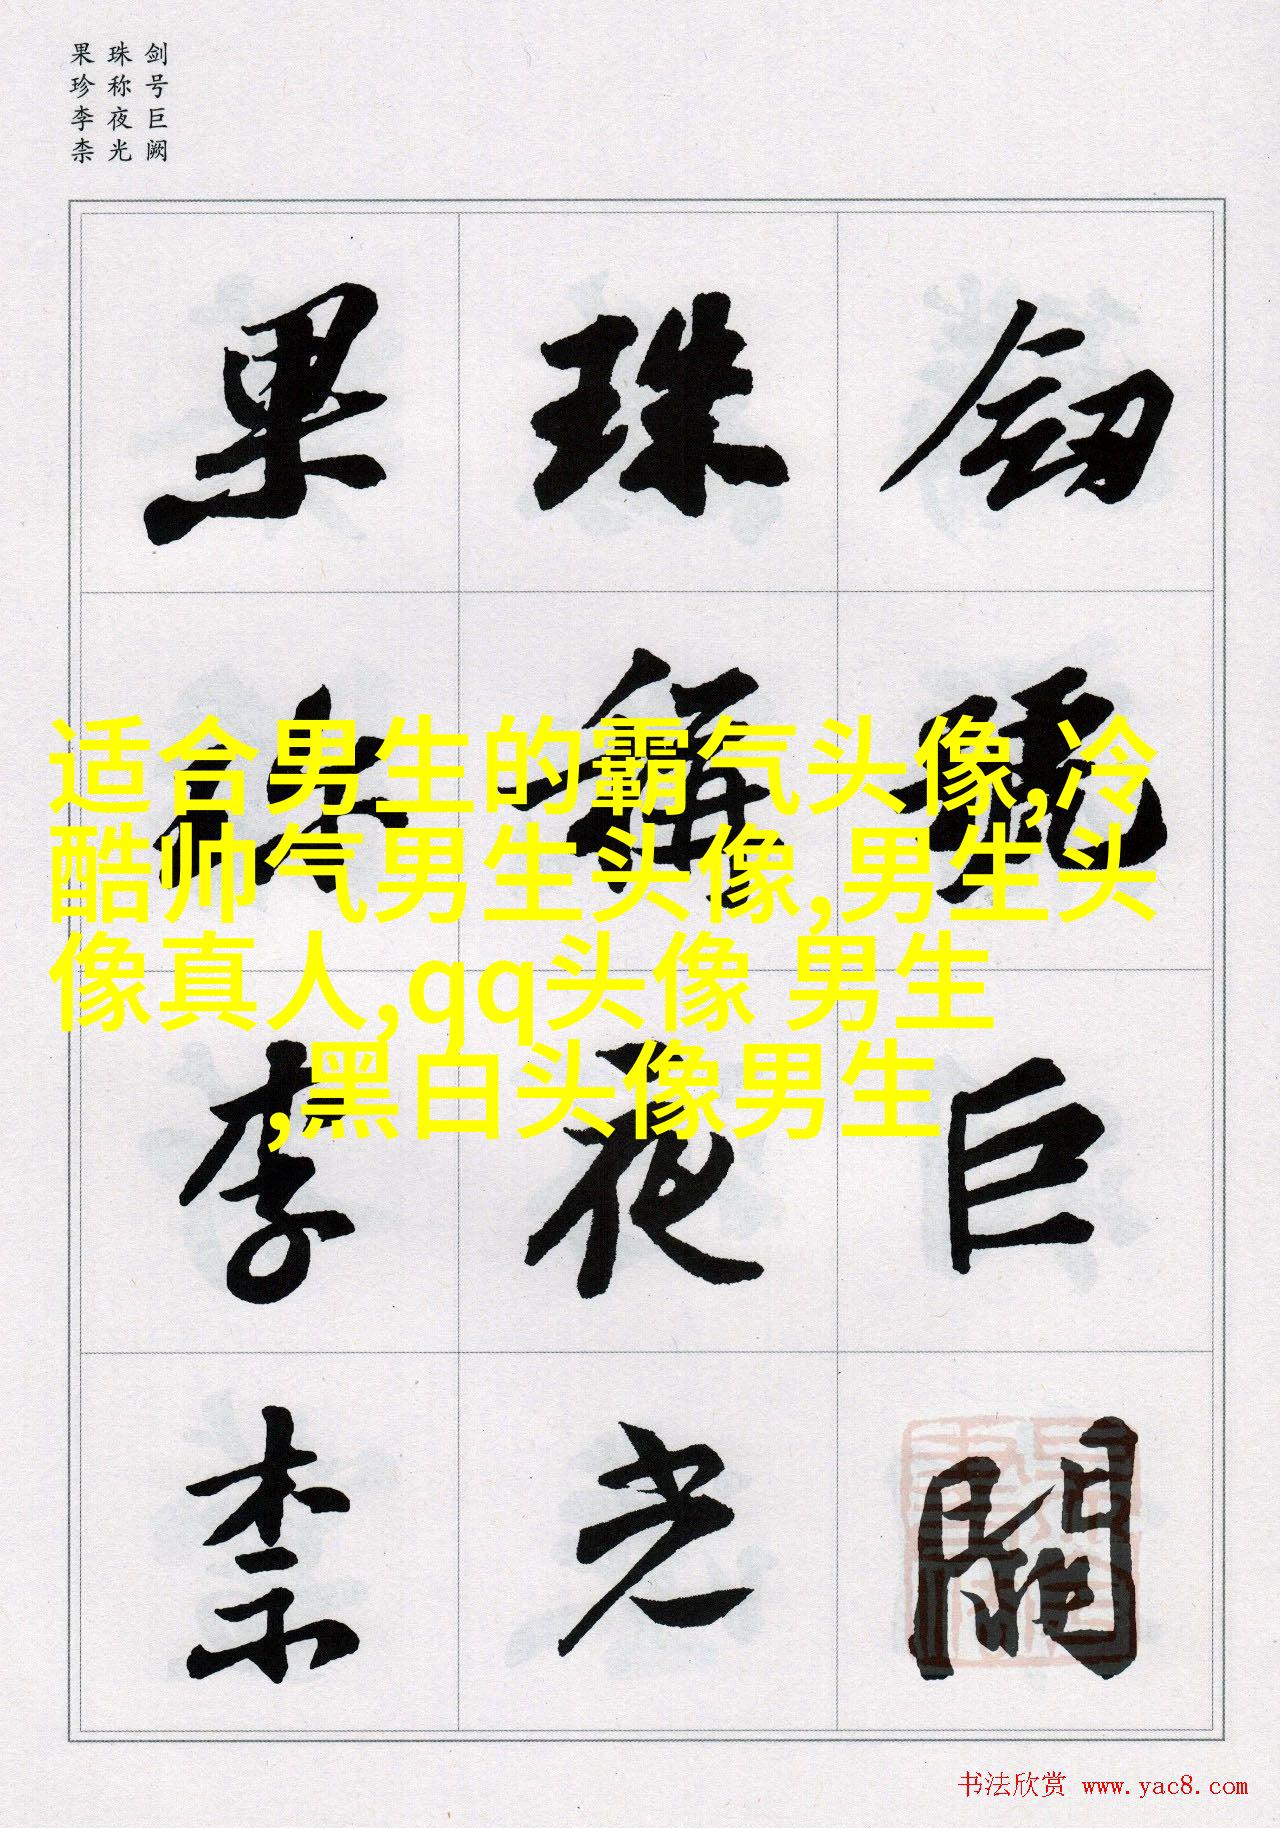 剑号巨阙
珠称夜光
果珍李柰
釖號巨闕
珠稱夜光
果珎李柰
适合男生的霸气头像,冷
酷帅气男生头像,男生头
像真人,qq头像 男生
,黑白头像男生
书法欣赏 www.yac8.com